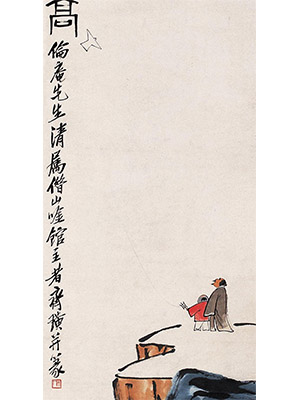 高
倫庵先生清屬借山唫館主者齊璜并篆